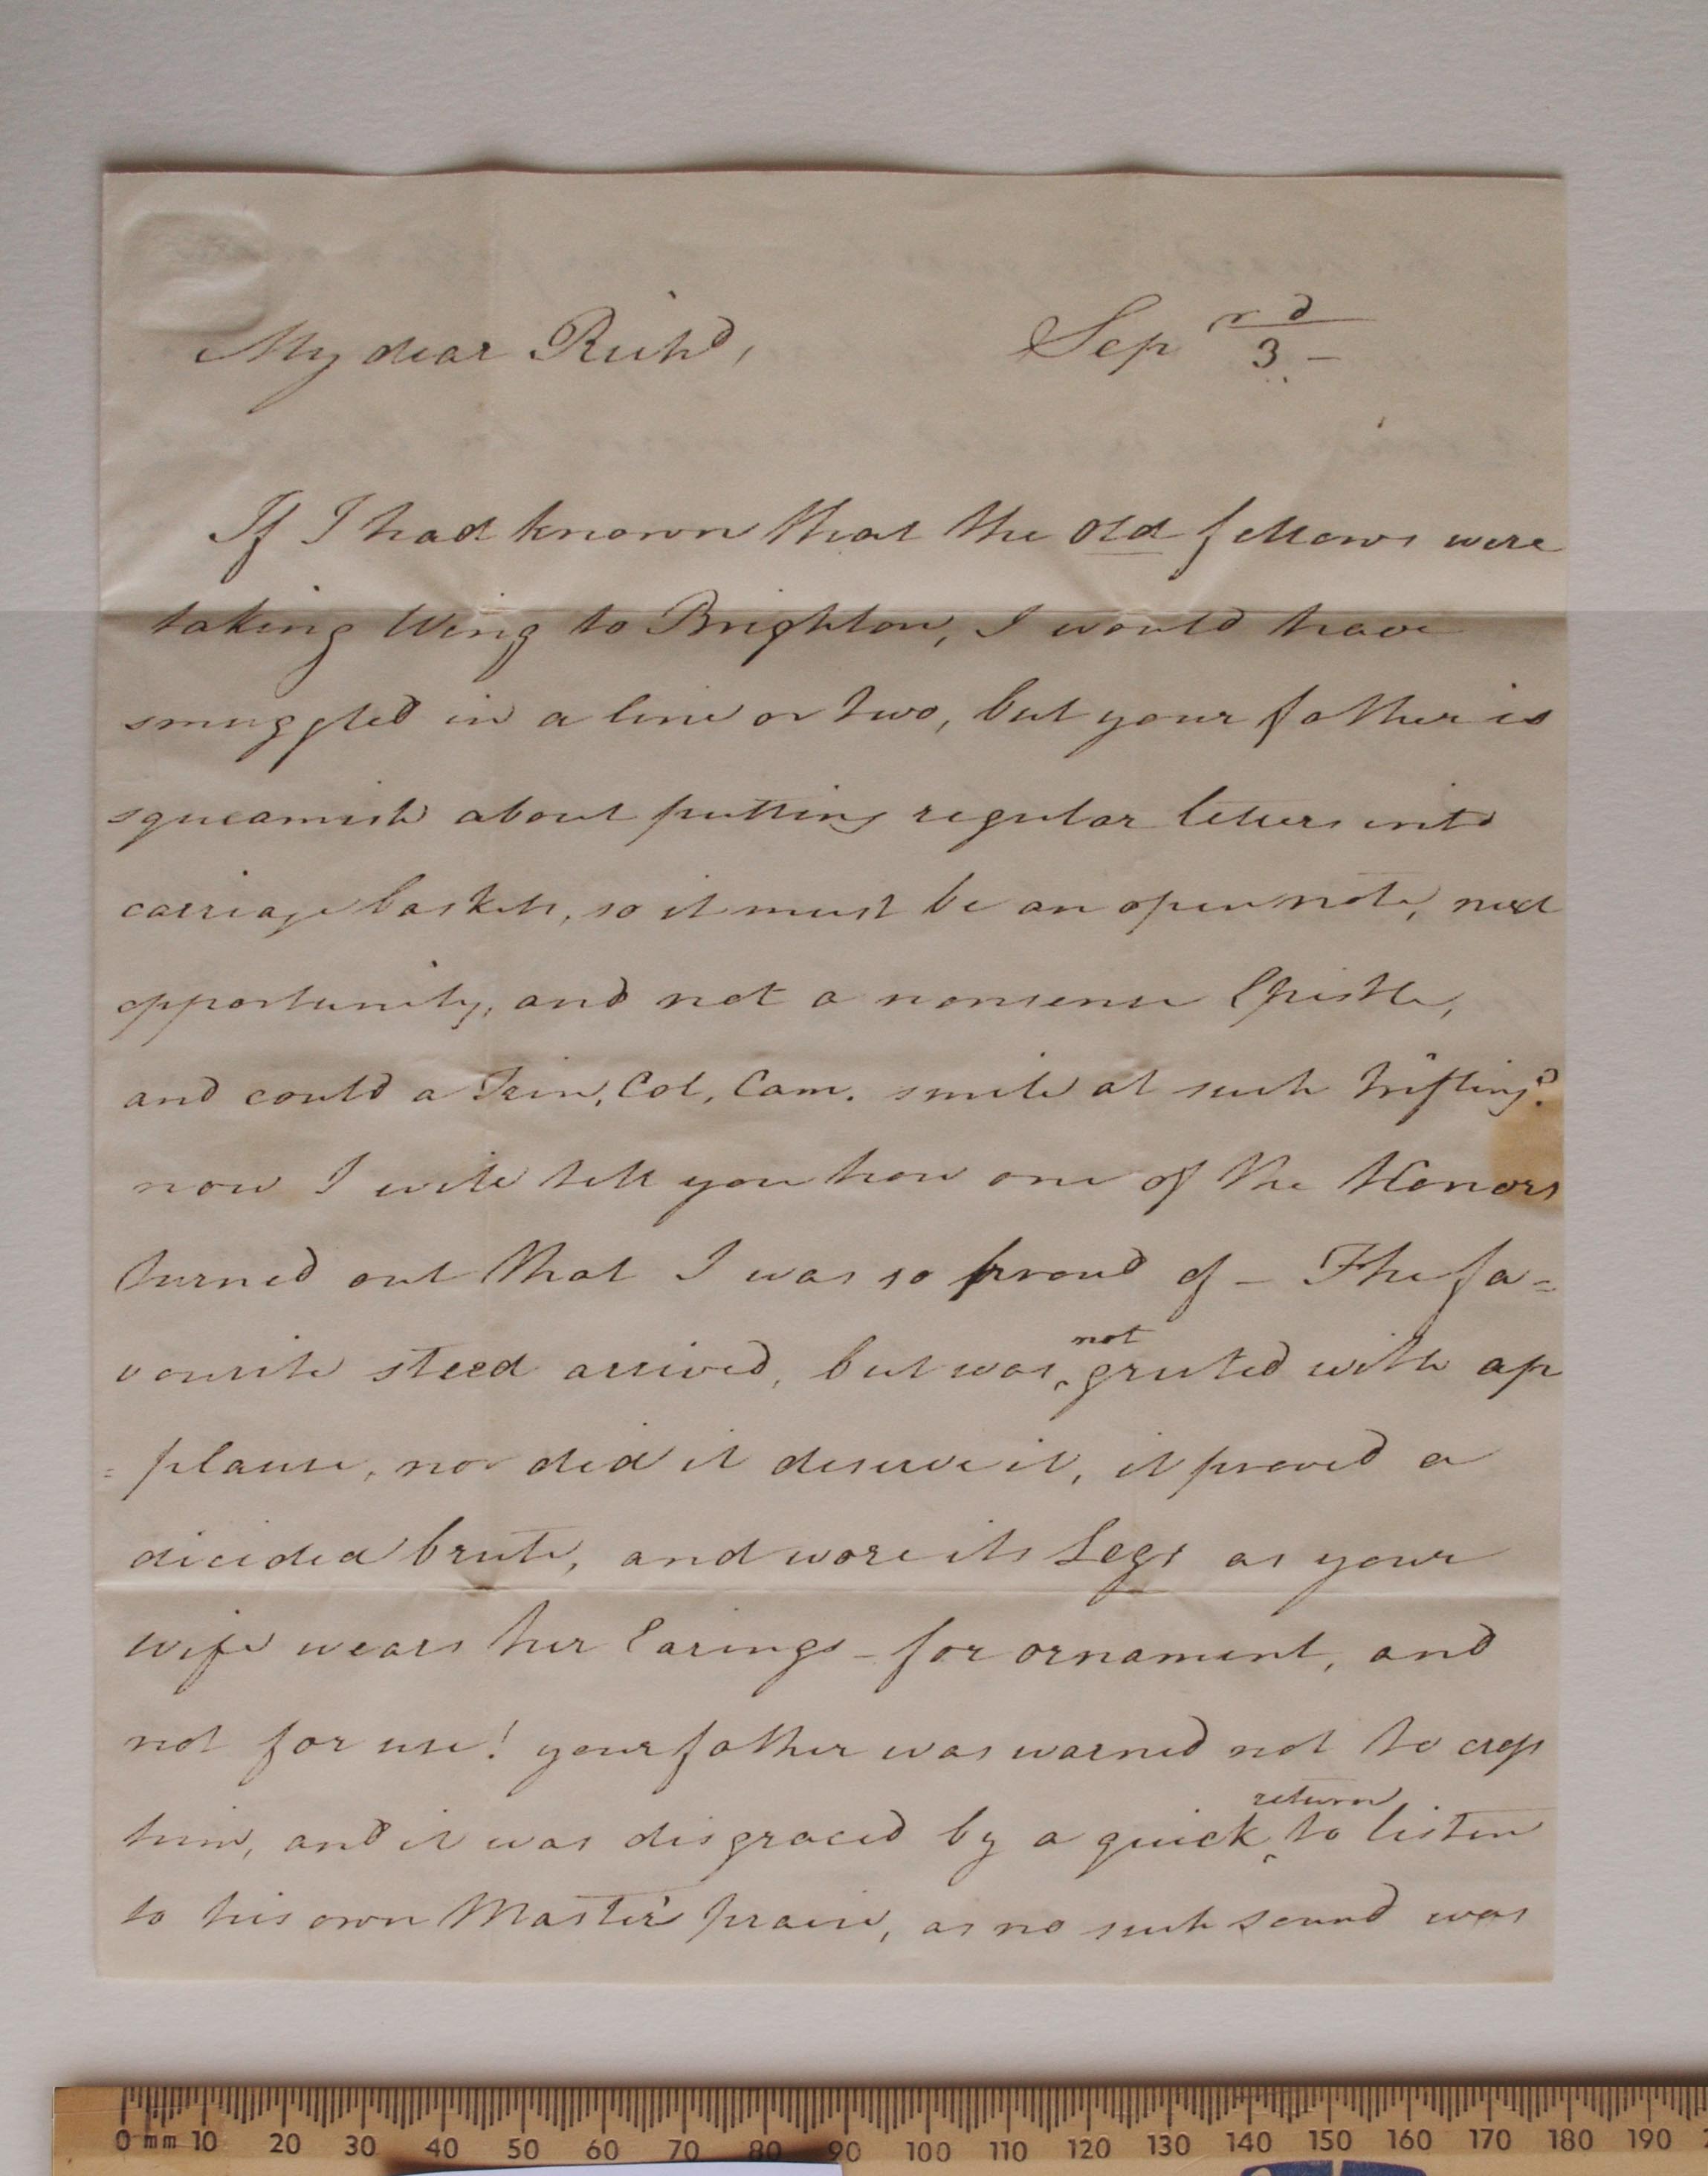 My dear Richd, Sep rd
3 -
If I had known that the old fellows were
taking Wing to Brighton, I would have
smuggled in a line or two, but your father is
squeamish about putting regular letters into
carriage baskets, so it must be an open note, next
opportunity, and not a nonsense Epistle,
and could a Trin, Col, Cam. smile at such trifling?
now I will tell you how one of the Honors
turned out that I was so proud of - The fa=
vourite steed arrived, but was not greeted with ap
=plause, nor did it deserve it, it proved a
dicided brute, and wore its Legs as your
wife wears her Earings - for ornament, and
not for use! your father was warned not to crop
him, and it was disgraced by a quick return to listen
to his own Master's praise, as no such sound was
0 mm 10 20 30 40 50 60 70 80 90 100 110 120 130 140 150 160 170 180 190